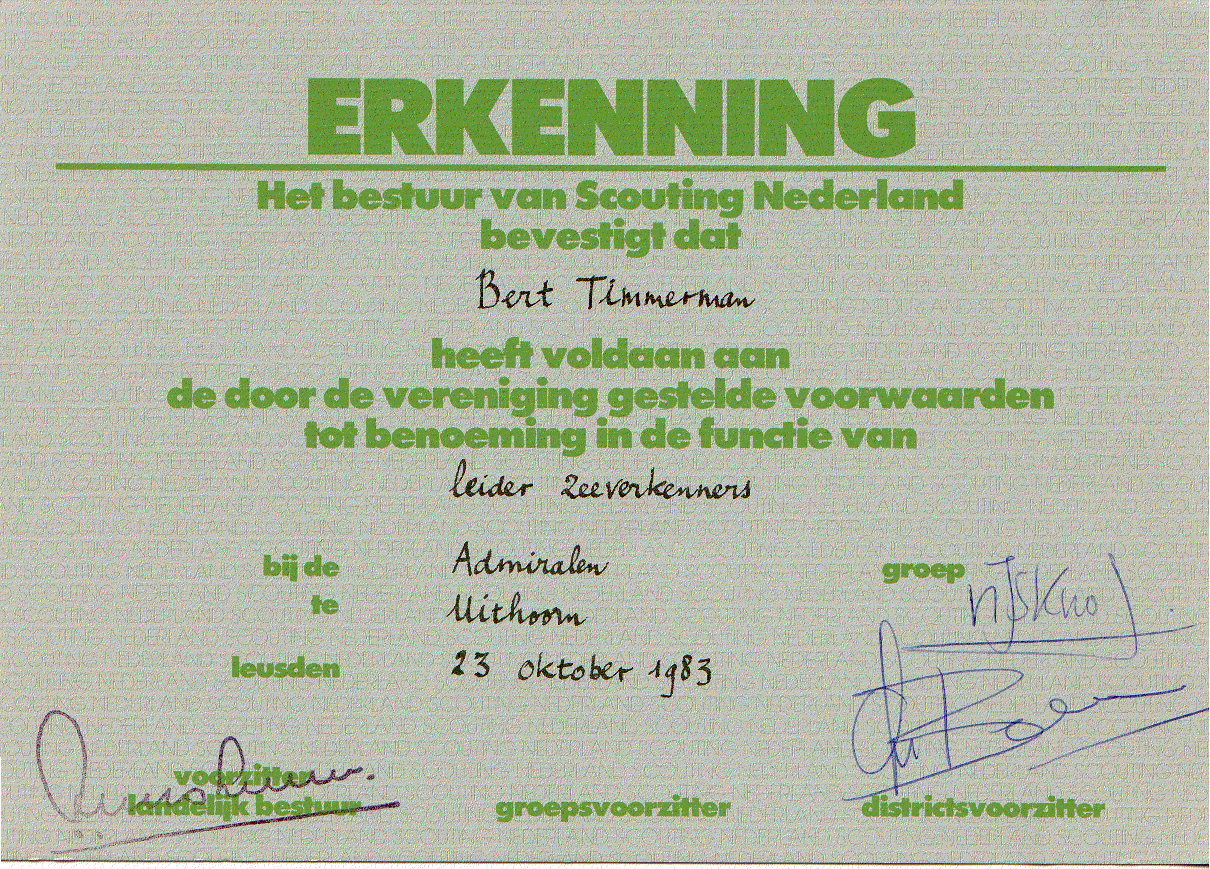 ERKENNING
Het bestuur van Scouting Nederland
bevestigt dat
Bert Timmerman
heeft voldaan aan
de door de vereniging gestelde voorwaarden
tot benoeming in de functie van
leider zeeverkenners
bij de Admiralen groep
te Uithoorn
leusden 23 oktober 1983
voorzitter
landelijk bestuur groepsvoorzitter districtsvoorzitter